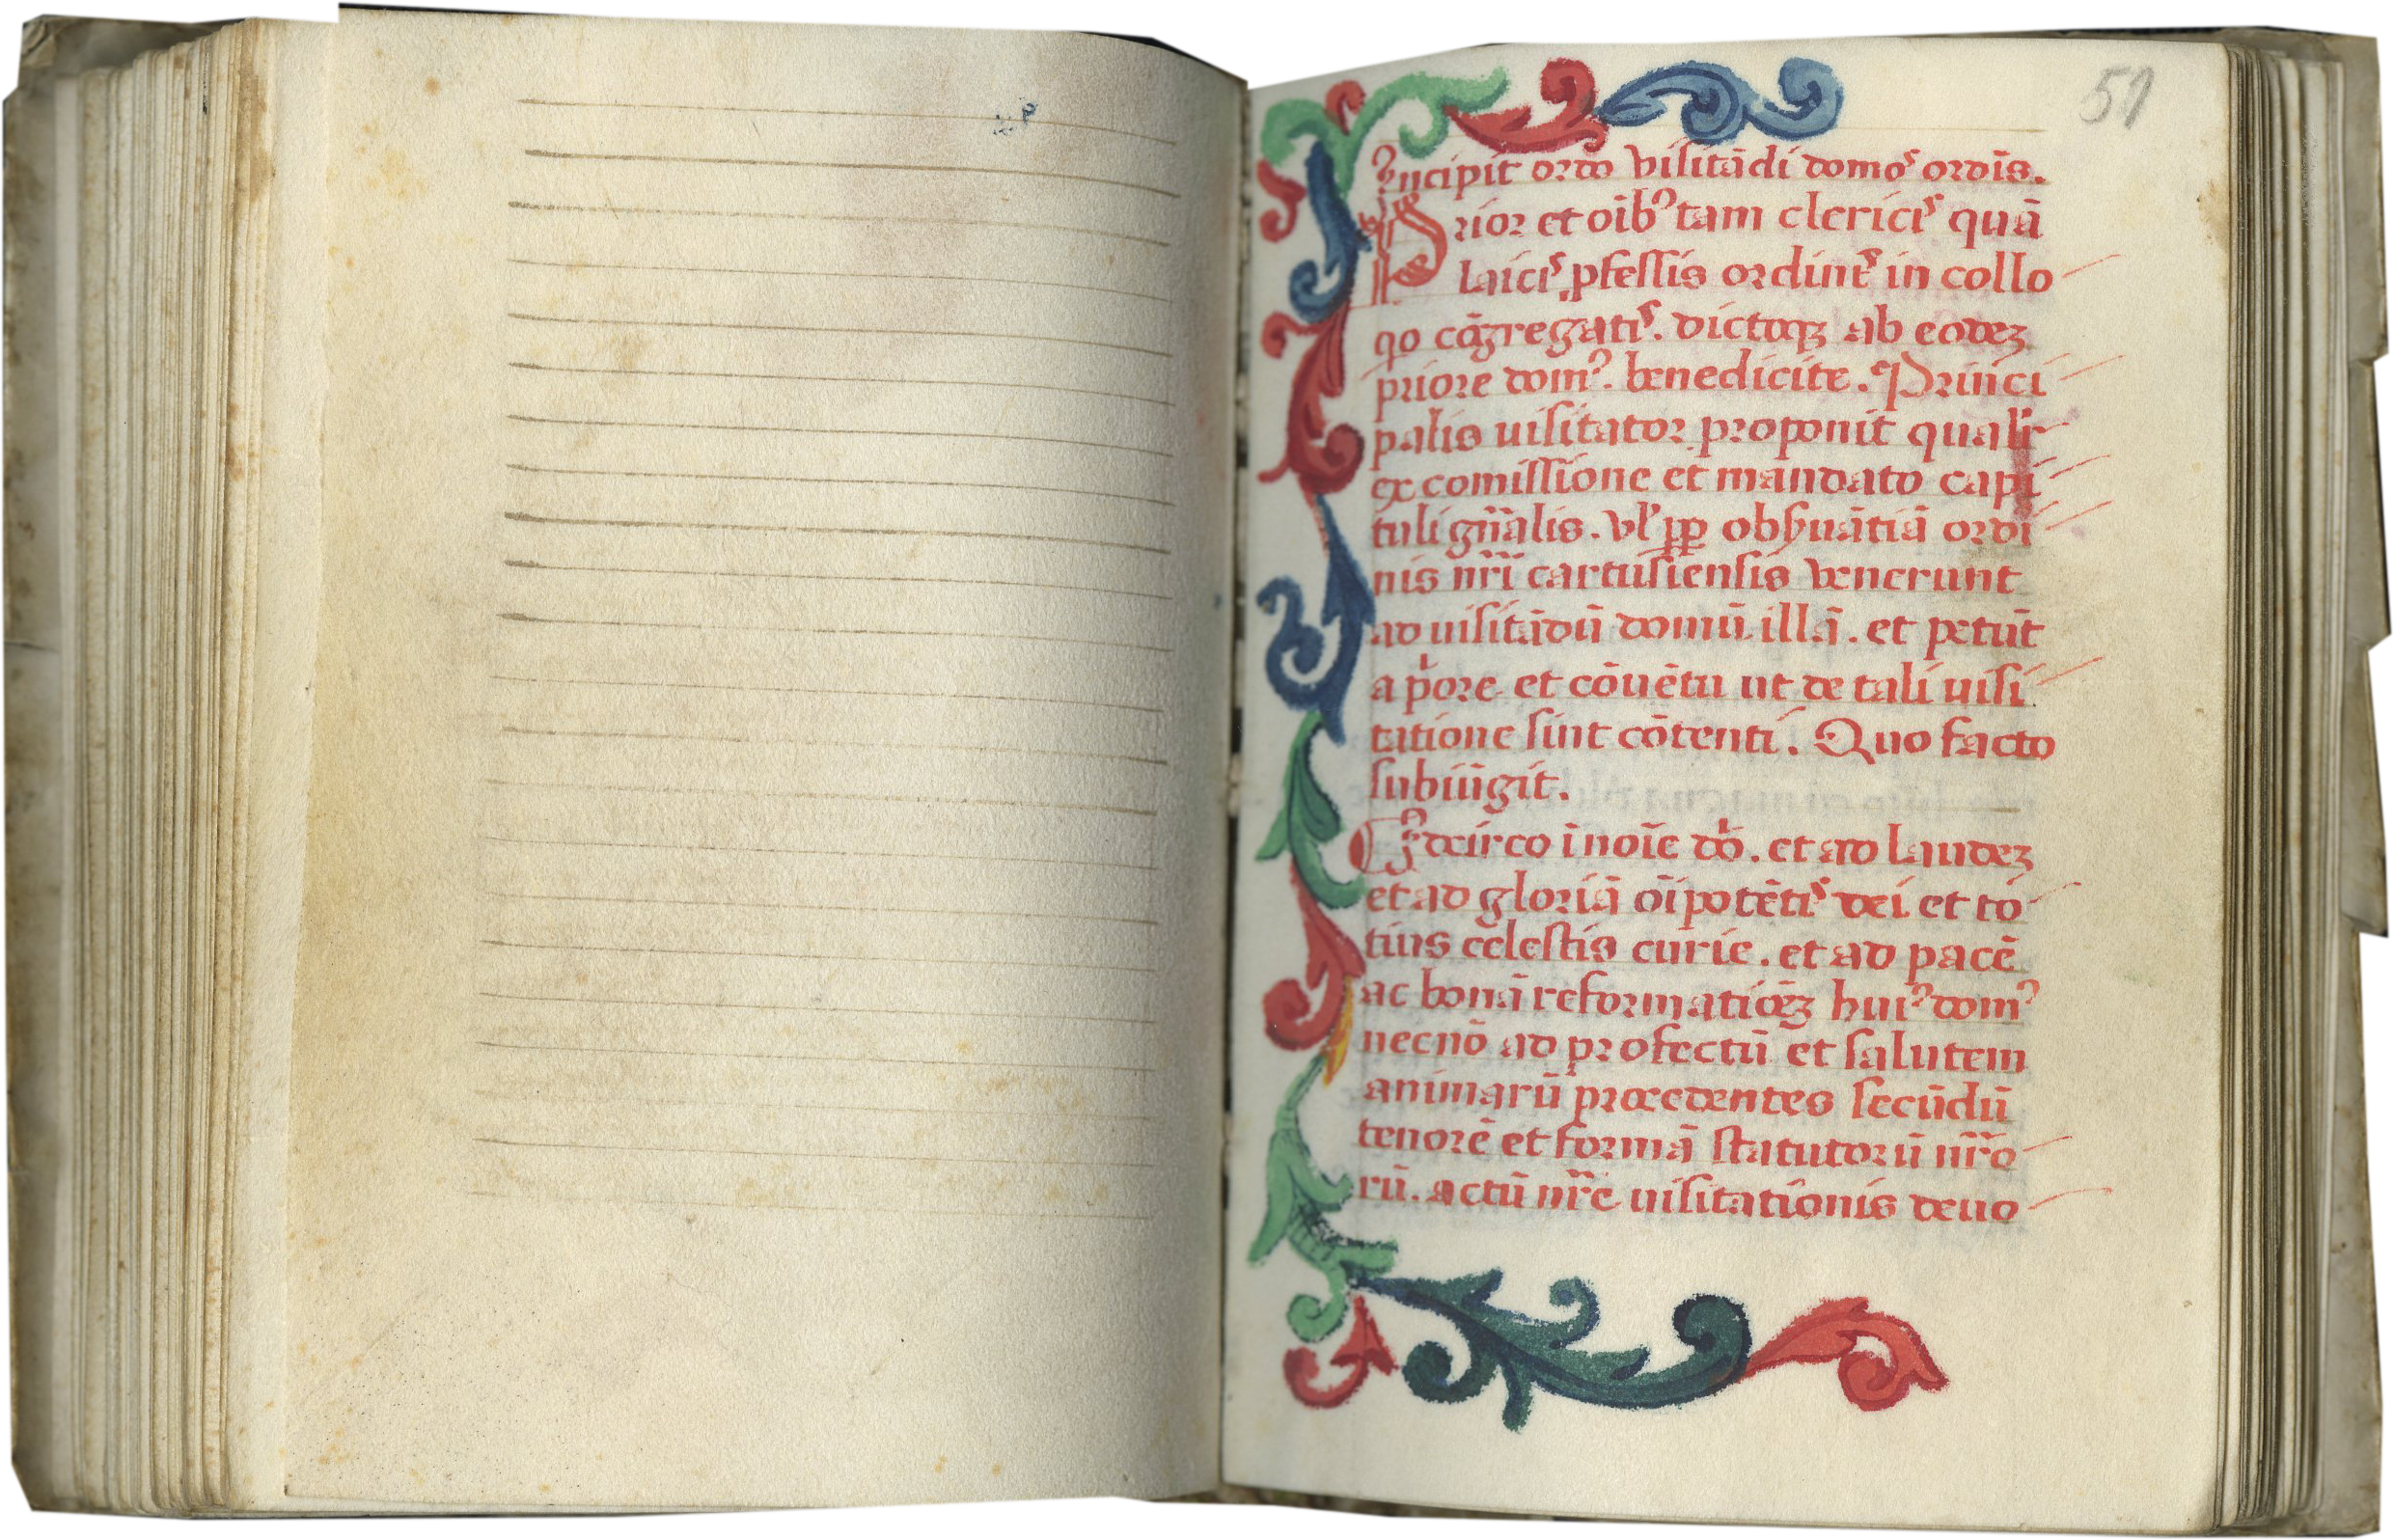 51
Incipit ordo visitādi domoꝰ ordīs.
Prior et oīb⁹ tam clericis quā
laicis ꝓfessis ordinīs in collo
qo cōgregatis. dictoqꝫ ab eodeꝫ
priore dom⁹. benedicite. Princi
palis uisitator proponit qualr
ex comissione et mandato capi
tuli gn̄alis. vl' ꝓꝑ obs̄uātiā ordi
nis nr̄i cartusiensis venerunt
ad uisitādū domū illā. et petūt
a p'ore et cōuētu ut de tali uisi
tatione sint cōtenti. Quo facto
subiūgit.
Idcirco ī noīe dō. et ad laudeꝫ
et ad gloriā oīpotētis dei et to
tius celestis curie. et ad pacē
ac bonā reformatiōeꝫ hui⁹ dom⁹
necnō ad profectū et salutem
animarū procedentes secūdū
tenorē et formā statutorū nr̄o
rū. actū nr̄e uisitationis deuo